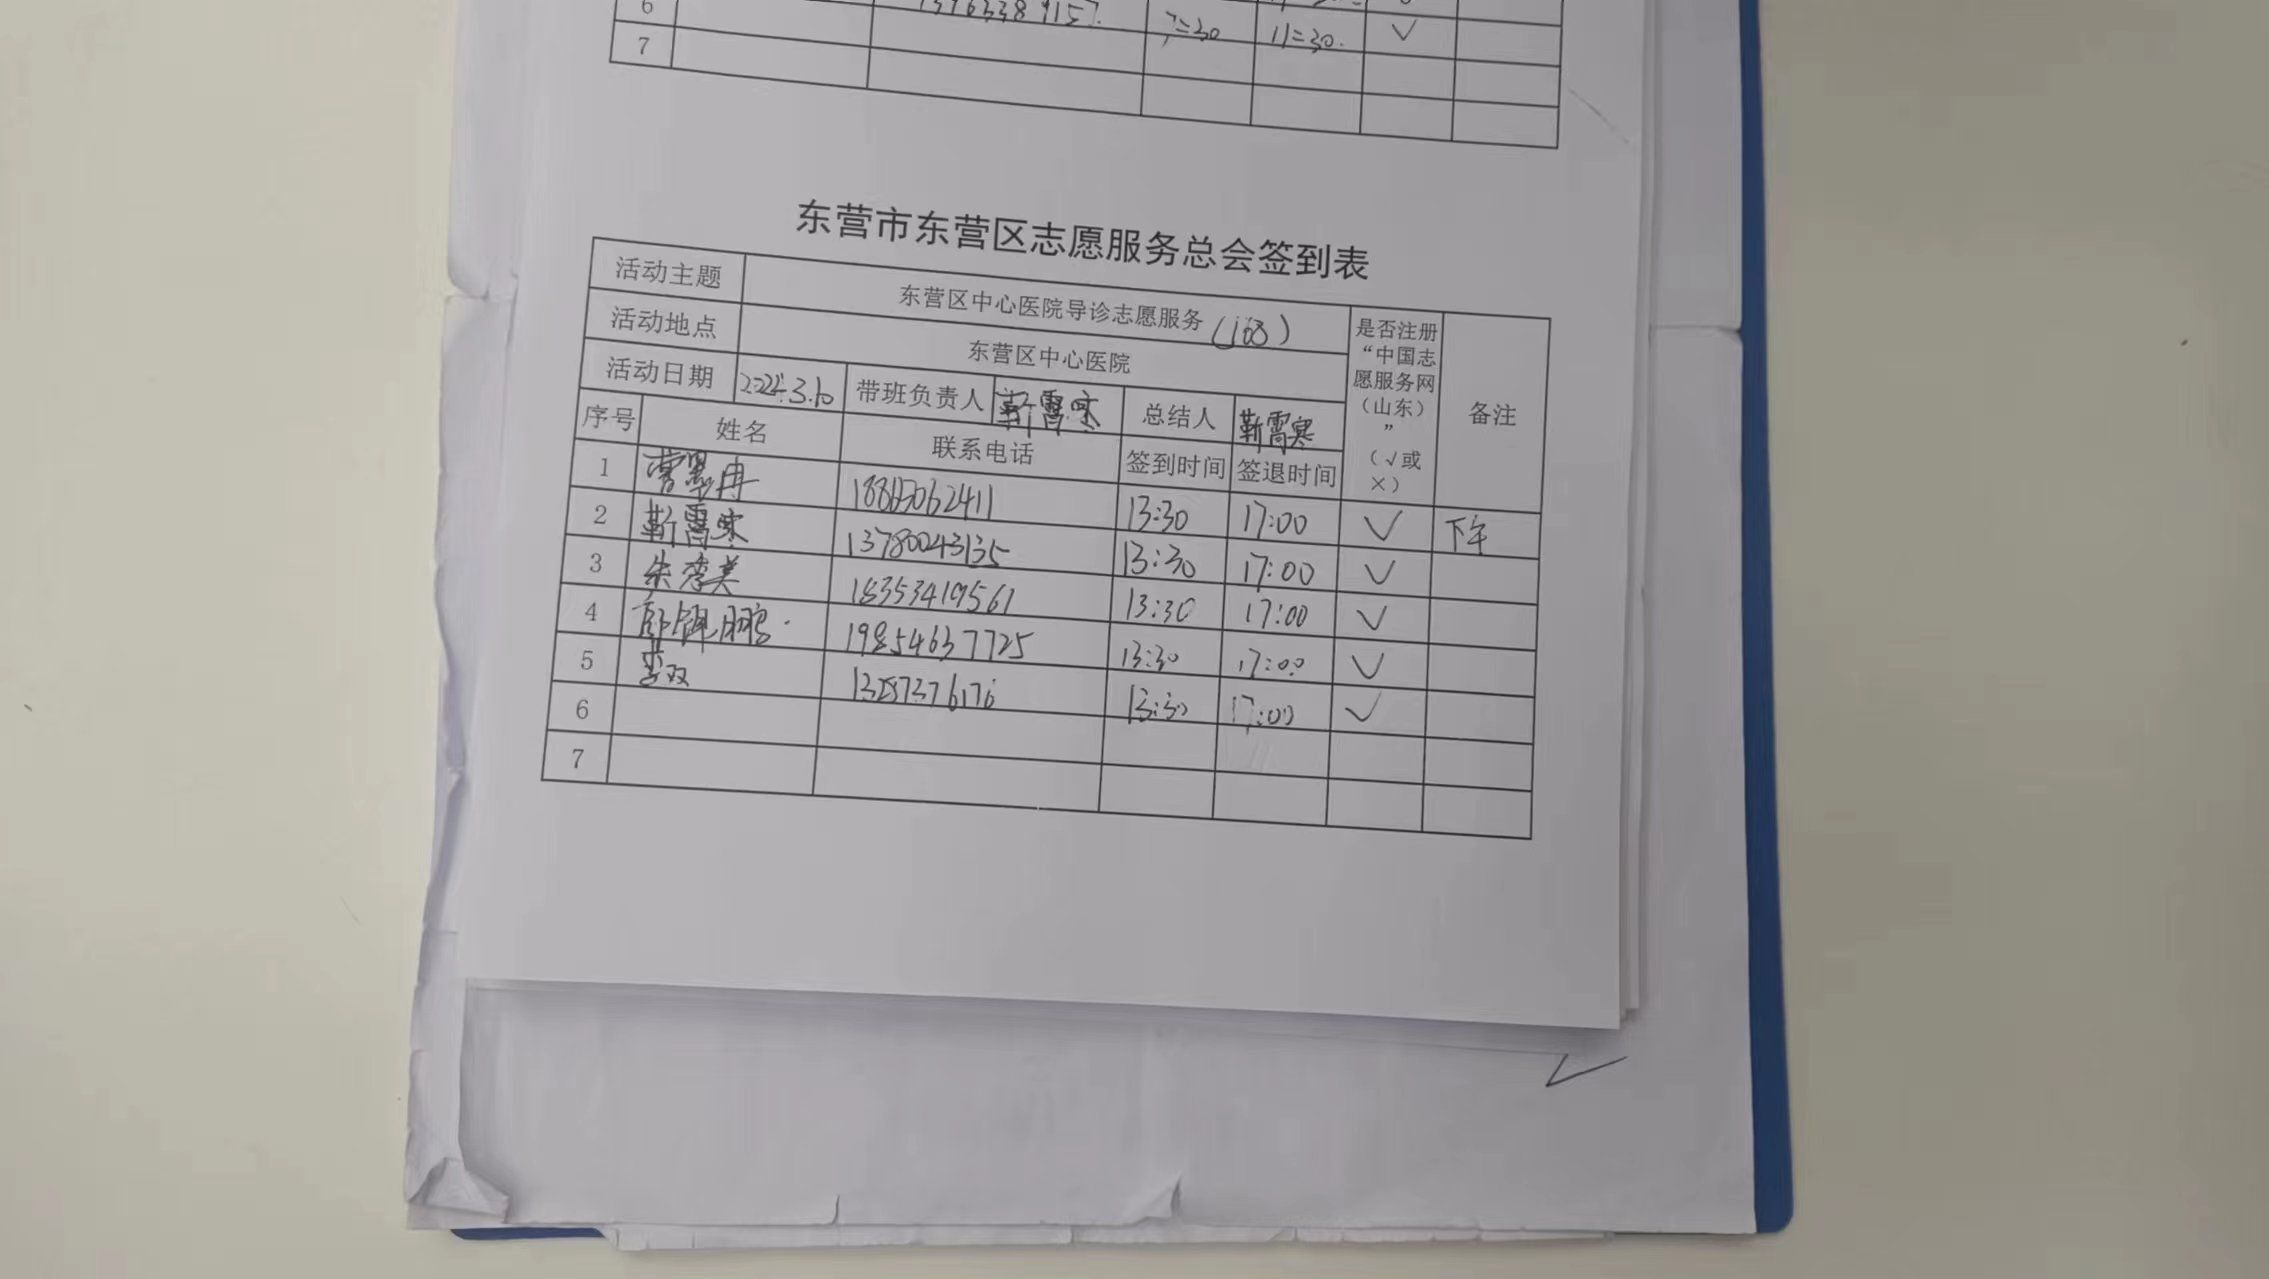 6
7 7=30 11=30. √
东营市东营区志愿服务总会签到表
活动主题 东营区中心医院导诊志愿服务(168)
活动地点 东营区中心医院
活动日期 带班负责人 靳霄寒 总结人 靳霄寒
是否注册
“中国志
愿服务网
（山东）
”
（√或
×）
备注
序号 姓名 联系电话 签到时间 签退时间
1 18865062411 13:30 17:00 √ 下午
2 靳霄寒 13780043135 13:30 17:00 √
3 朱秀美 18353419561 13:30 17:00 √
4 19854637725 13:30 17:00 √
5 李双 13:30 17:00 √
6
7